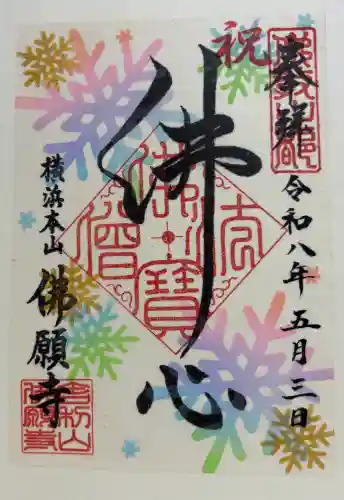 奉拝
令和八年五月三日
祝
佛心
佛法僧寶
横浜本山
佛願寺